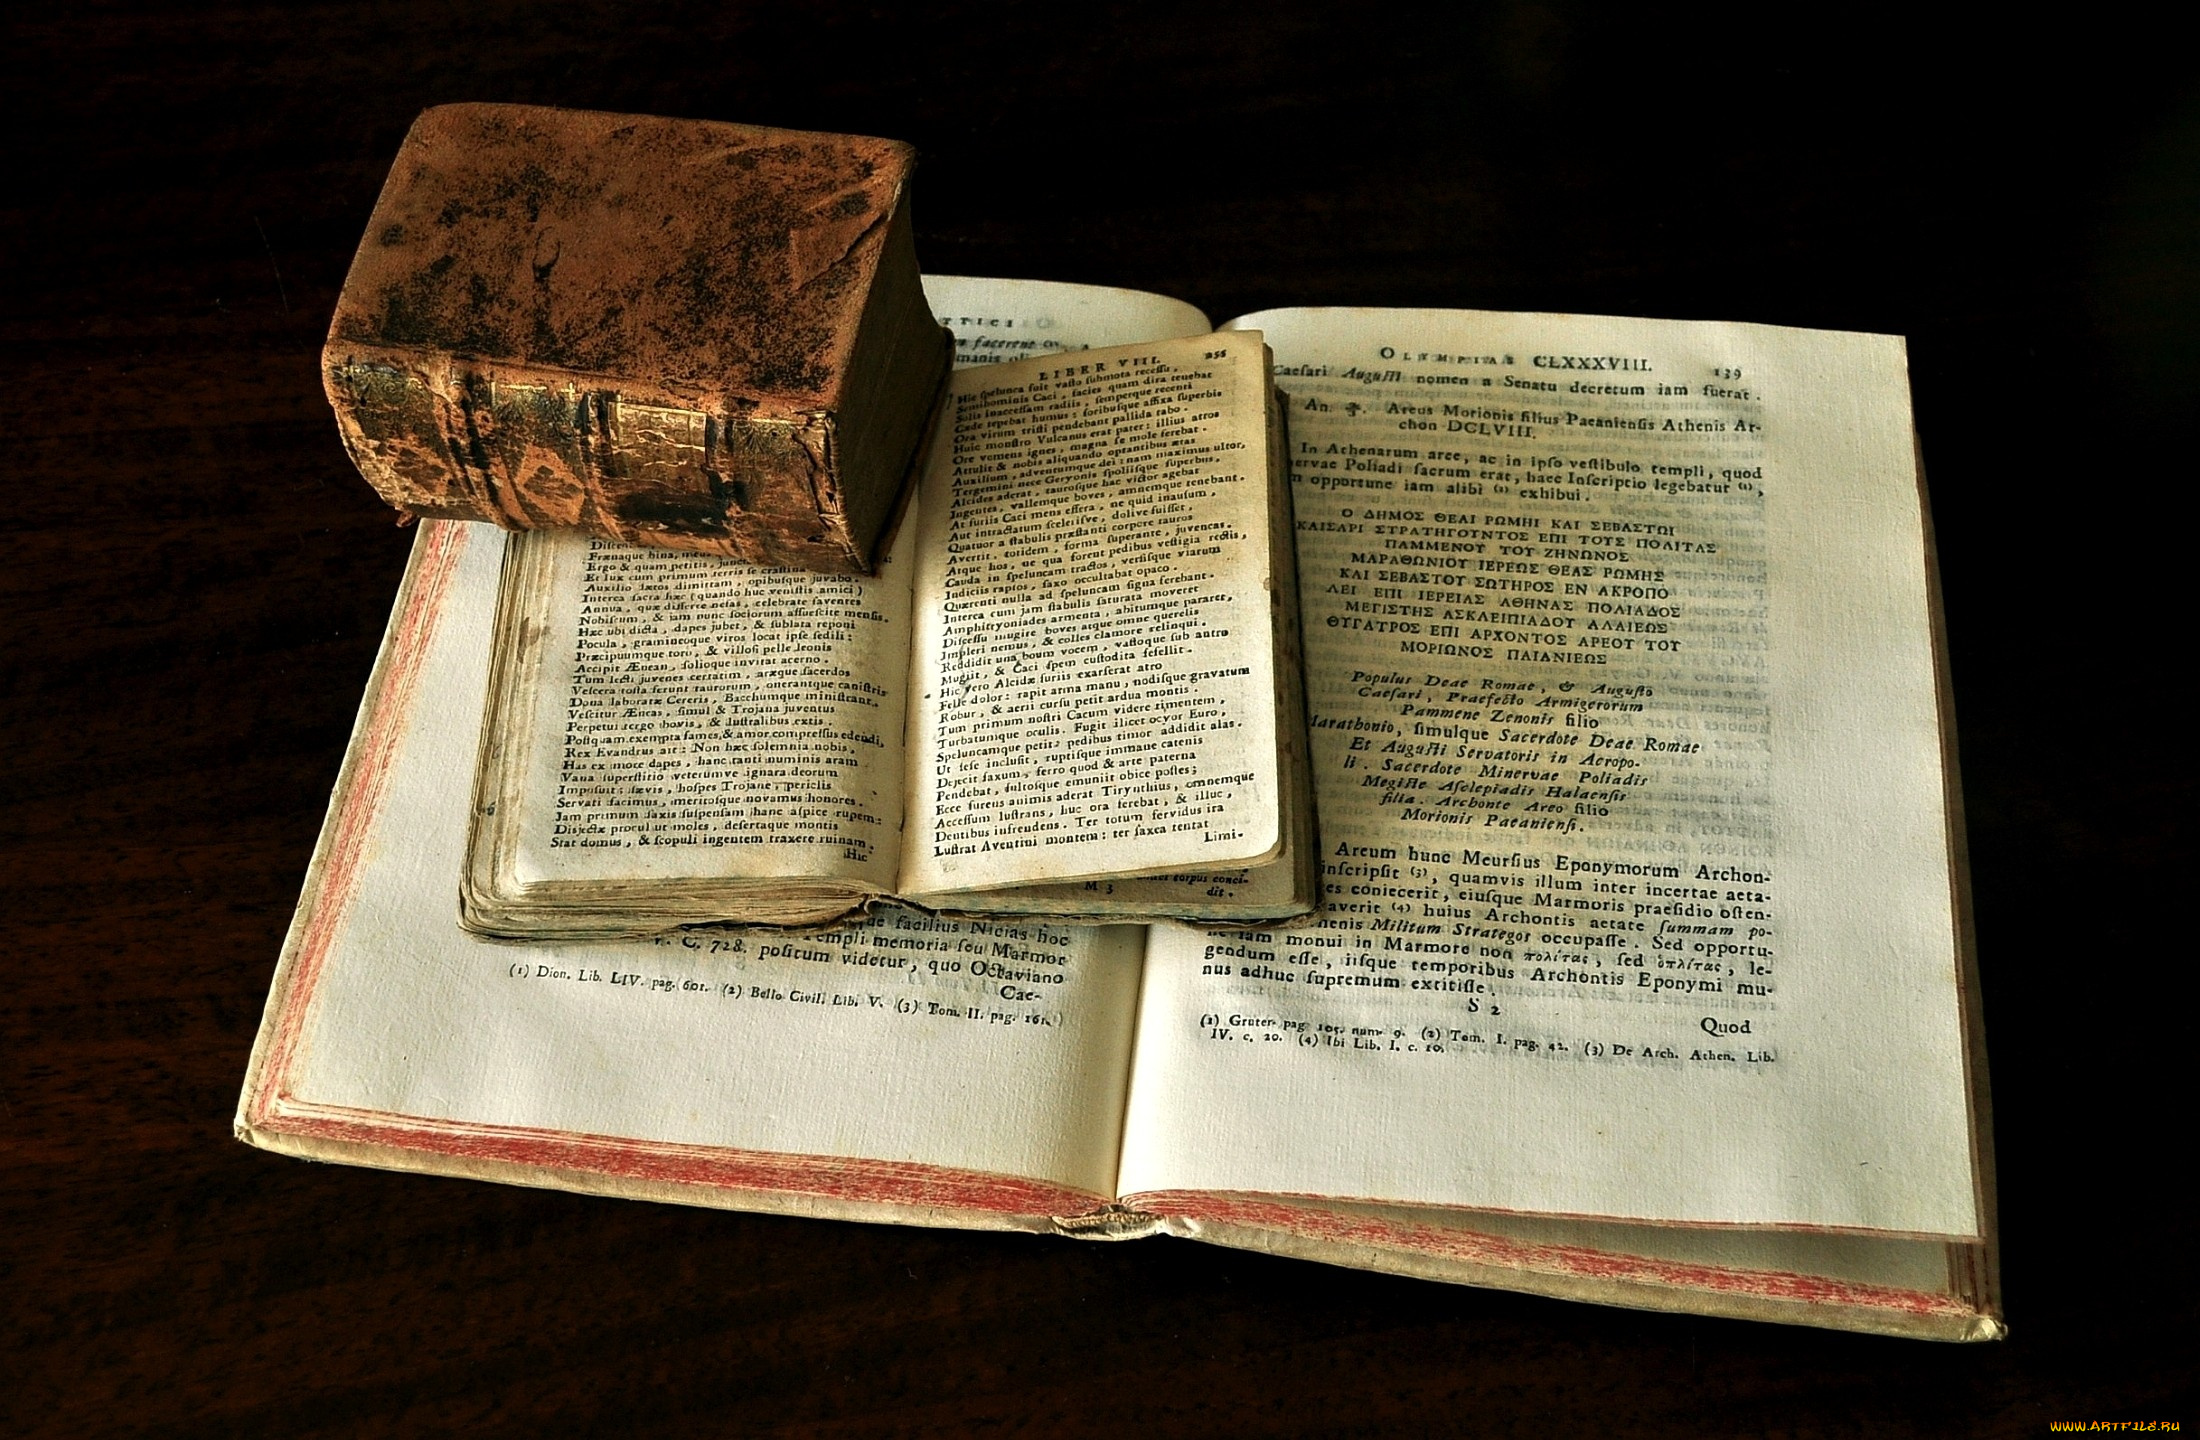 TTICI
facerent (1)
LIBER VIII. 255
Hic spelunca fuit vasto submota recessu,
Semihominis Caci, facies quam dira tenebat
Solis inaccessam radiis, semperque recenti
Cæde tepebat humus: foribusque affixa superbis
Ora virum tristi pendebant pallida tabo.
Huic monstro Vulcanus erat pater: illius atros
Ore vomens ignes, magna se mole ferebat.
Attulit & nobis aliquando optantibus ætas
Auxilium, adventumque dei: nam maximus ultor,
Tergemini nece Geryonis spoliisque superbus,
Alcides aderat, taurosque hac victor agebat
Ingentes, vallemque boves, amnemque tenebant.
At furiis Caci mens effera, ne quid inausum,
Aut intractatum scelerisve, dolive fuisset,
Quatuor a stabulis præstanti corpore tauros
Avertit, totidem, forma superante, juvencas.
Atque hos, ne qua forent pedibus vestigia rectis,
Cauda in speluncam tractos, versisque viarum
Indiciis raptos, saxo occultabat opaco.
Quærenti nulla ad speluncam signa ferebant.
Interea cum jam stabulis saturata moveret
Amphitryoniades armenta, abitumque pararet,
Discessu mugire boves atque omne querelis
Impleri nemus, & colles clamore relinqui.
Reddidit una boum vocem, vastoque sub antro
Mugiit, & Caci spem custodita fefellit.
Hic vero Alcidæ furiis exarserat atro
Felle dolor: rapit arma manu, nodisque gravatum
Robur, & aerii cursu petit ardua montis.
Tum primum nostri Cacum videre timentem,
Turbatumque oculis. Fugit ilicet ocyor Euro,
Speluncamque petit: pedibus timor addidit alas.
Ut sese inclusit, ruptisque immane catenis
Dejecit saxum, ferro quod & arte paterna
Pendebat, fultosque emuniit obice postes;
Ecce furens animis aderat Tirynthius, omnemque
Accessum lustrans, huc ora ferebat, & illuc,
Dentibus infrendens. Ter totum fervidus ira
Lustrat Aventini montem: ter saxea tentat
Limi-
Frænaque bina, meus
Ergo & quam petitis, juncta
Et lux cum primum terris se crastina
Auxilio lætos dimittam, opibusque juvabo.
Interea sacra hæc (quando huc venistis amici)
Annua, quæ differre nefas, celebrate faventes
Nobiscum, & jam nunc sociorum assuescite mensis.
Hæc ubi dicta, dapes jubet, & sublata reponi
Pocula, gramineoque viros locat ipse sedili:
Præcipuumque toro, & villosi pelle leonis
Accipit Ænean, solioque invitat acerno.
Tum lecti juvenes certatim, aræque sacerdos
Viscera tosta ferunt taurorum, onerantque canistris
Dona laboratæ Cereris, Bacchumque ministrant.
Vescitur Æneas, simul & Trojana juventus
Perpetui tergo bovis, & lustralibus extis.
Postquam exempta fames, & amor compressus edendi,
Rex Evandrus ait: Non hæc solemnia nobis,
Has ex more dapes, hanc tanti numinis aram
Vana superstitio veterumve ignara deorum
Imposuit: sævis, hospes Trojane, periclis
Servati facimus, meritosque novamus honores.
Jam primum saxis suspensam hanc aspice rupem:
Disjectæ procul ut moles, desertaque montis
Stat domus, & scopuli ingentem traxere ruinam.
Hic
M 3
corpus conci-
dit.
facilius Nicias hoc
Templi memoria seu Marmor
V. C. 728. positum videtur, quo Octaviano
Cae-
(1) Dion. Lib. LIV. pag. 601. (2) Bello Civil. Lib. V. (3) Tom. II. pag. 161.
OLYMPIAS CLXXXVIII. 139
Caesari Augusti nomen a Senatu decretum iam fuerat.
An. Areus Morionis filius Paeaniensis Athenis Ar-
chon DCLVIII.
In Athenarum arce, ac in ipso vestibulo templi, quod
Poliadi sacrum erat, haec Inscriptio legebatur (1),
opportune iam alibi (2) exhibui.
Ο ΔΗΜΟΣ ΘΕΑΙ ΡΩΜΗΙ ΚΑΙ ΣΕΒΑΣΤΩΙ
ΚΑΙΣΑΡΙ ΣΤΡΑΤΗΓΟΥΝΤΟΣ ΕΠΙ ΤΟΥΣ ΠΟΛΙΤΑΣ
ΠΑΜΜΕΝΟΥ ΤΟΥ ΖΗΝΩΝΟΣ
ΜΑΡΑΘΩΝΙΟΥ ΙΕΡΕΩΣ ΘΕΑΣ ΡΩΜΗΣ
ΚΑΙ ΣΕΒΑΣΤΟΥ ΣΩΤΗΡΟΣ ΕΝ ΑΚΡΟΠΟ
ΛΕΙ ΕΠΙ ΙΕΡΕΙΑΣ ΑΘΗΝΑΣ ΠΟΛΙΑΔΟΣ
ΜΕΓΙΣΤΗΣ ΑΣΚΛΕΙΠΙΑΔΟΥ ΑΛΑΙΕΩΣ
ΘΥΓΑΤΡΟΣ ΕΠΙ ΑΡΧΟΝΤΟΣ ΑΡΕΟΥ ΤΟΥ
ΜΟΡΙΩΝΟΣ ΠΑΙΑΝΙΕΩΣ
Populus Deae Romae, & Augusto
Caesari, Praefecto Armigerorum
Pammene Zenonis filio
Marathonio, simulque Sacerdote Deae Romae
Et Augusti Servatoris in Acropo-
li. Sacerdote Minervae Poliadis
Megiste Asclepiadis Halaensis
filia. Archonte Areo filio
Morionis Paeaniensi.
Areum hunc Meursius Eponymorum Archon-
inscripsit (3), quamvis illum inter incertae aeta-
coniecerit, eiusque Marmoris praesidio osten-
averit (4) huius Archontis aetate summam po-
Militum Strategos occupasse. Sed opportu-
ne iam monui in Marmore non πολίτας, sed ὁπλίτας, le-
gendum esse, iisque temporibus Archontis Eponymi mu-
nus adhuc supremum extitisse.
S 2
Quod
(1) Gruter. pag. 105. num. 9. (2) Tom. I. pag. 42. (3) De Arch. Athen. Lib.
IV. c. 20. (4) Ibi Lib. I. c. 10.
WWW.ARTFILE.RU